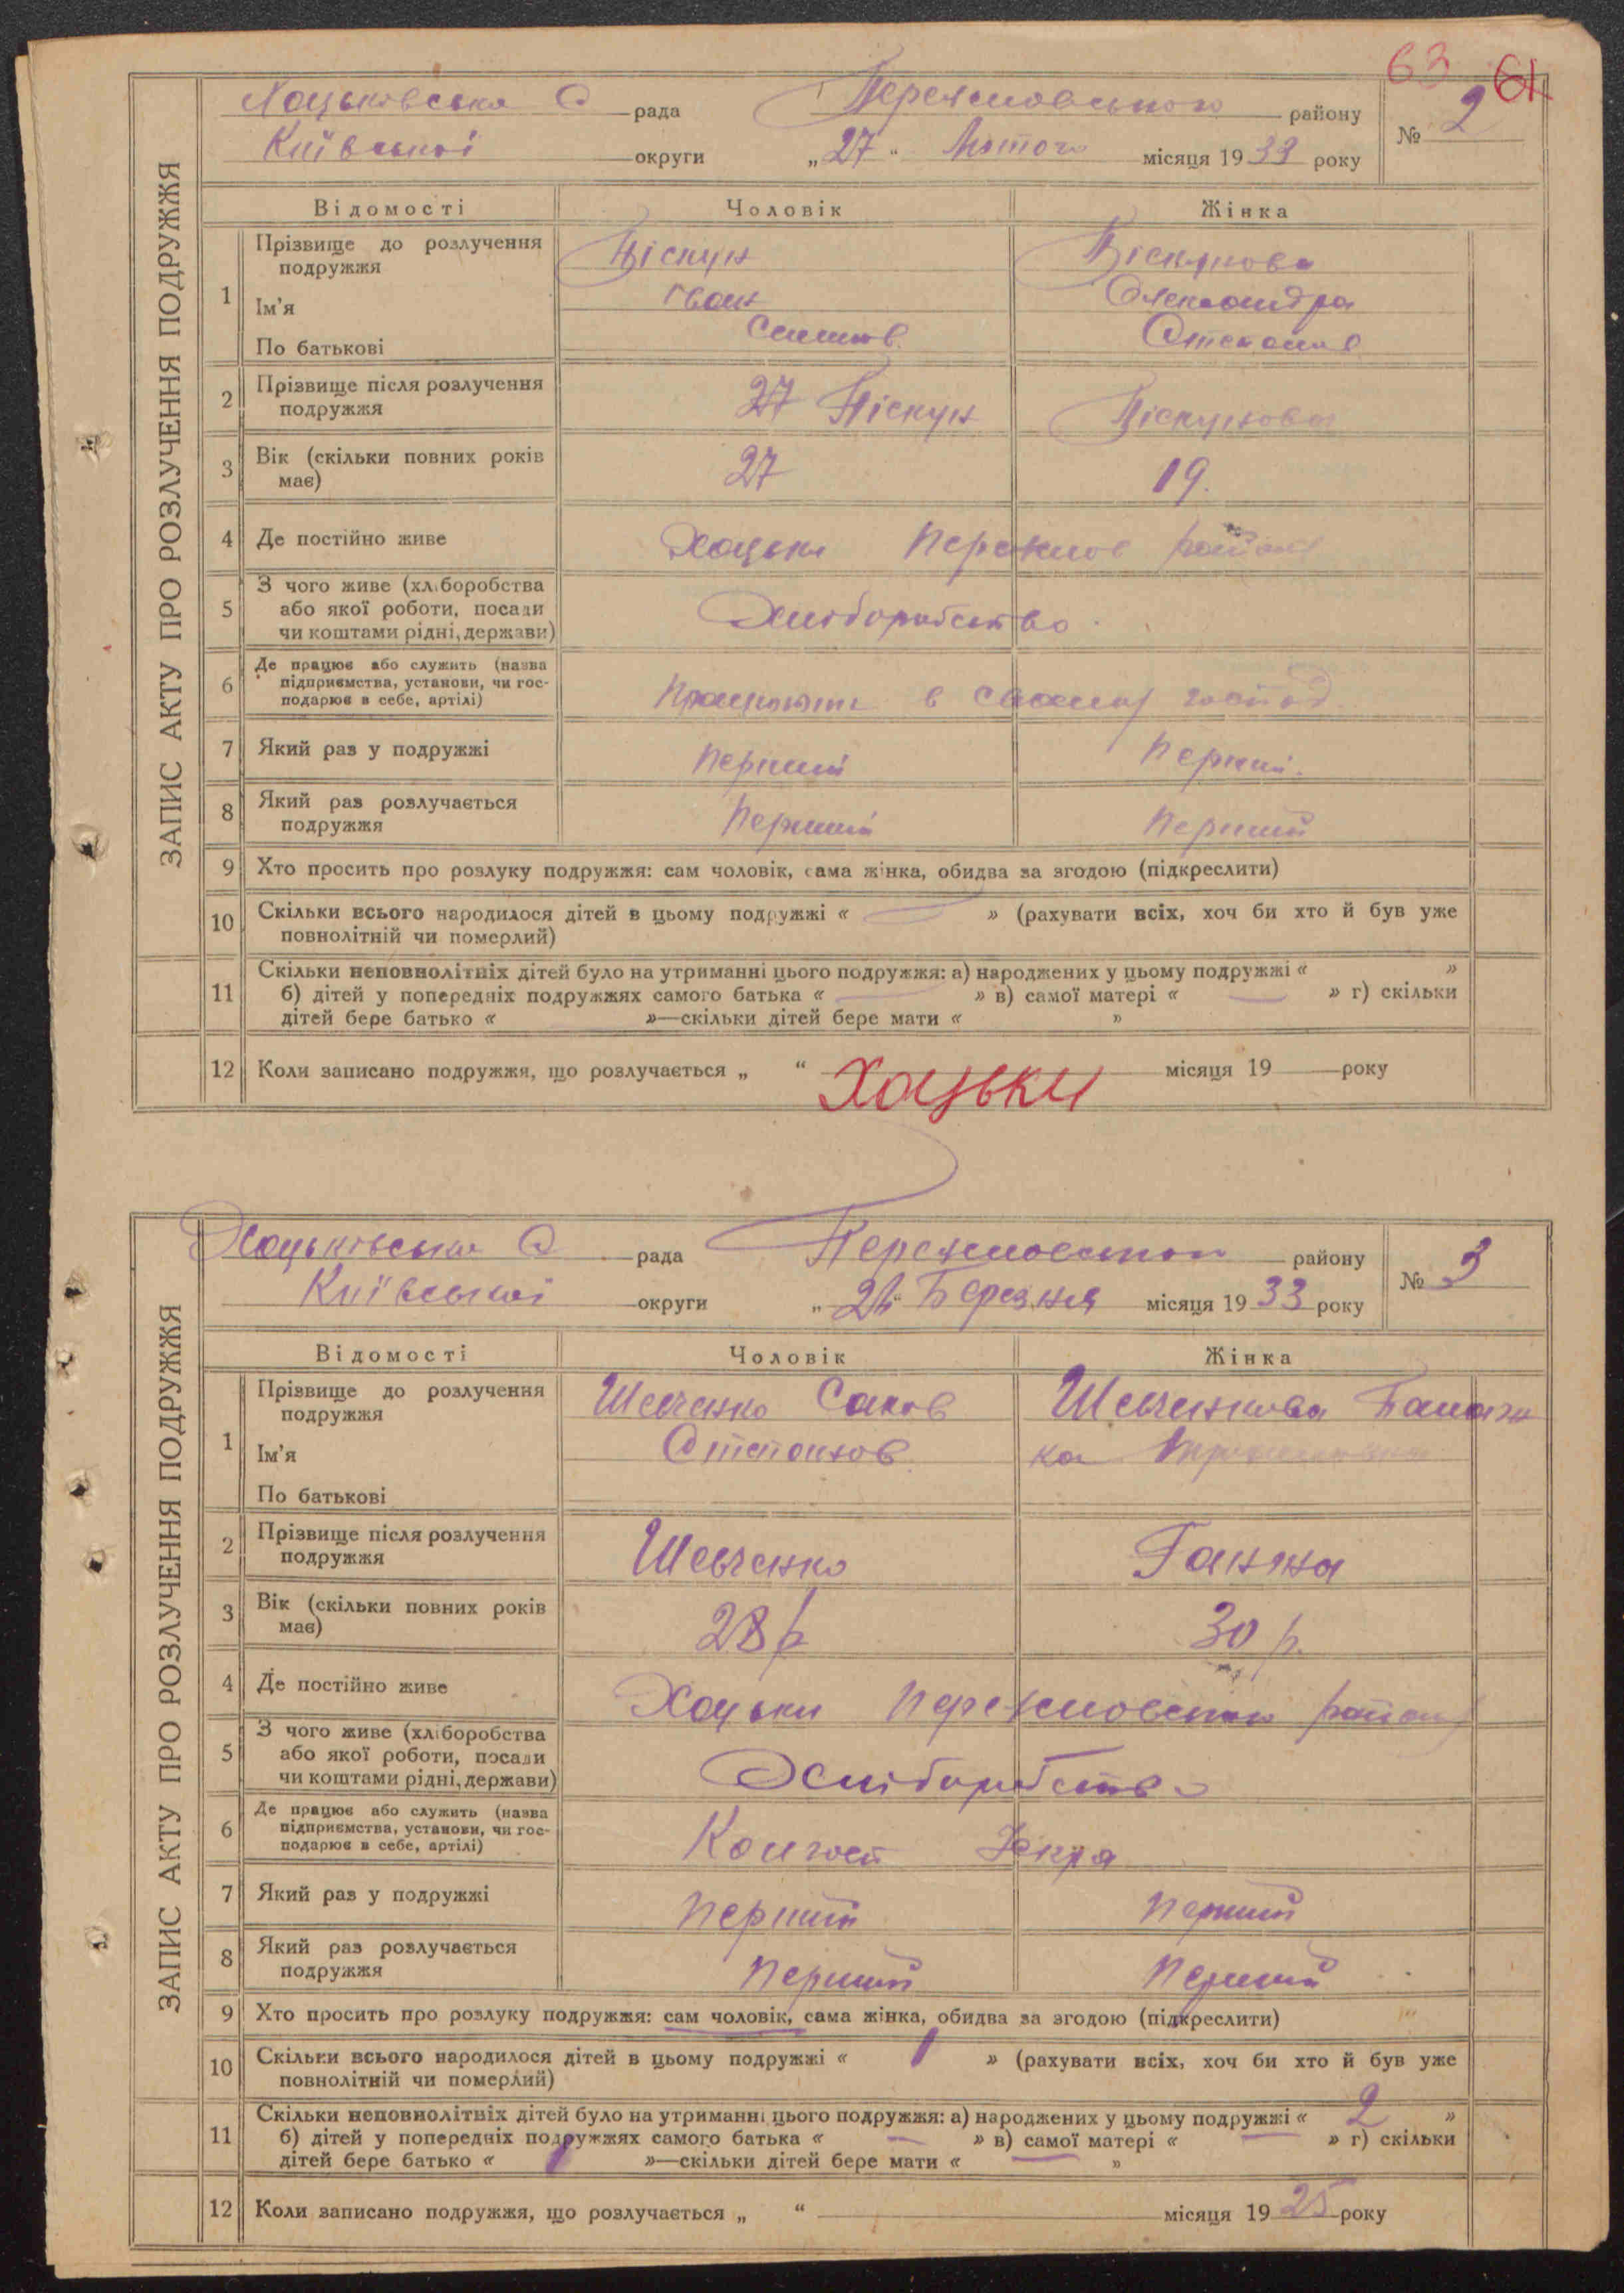 63 61
Хоцьківська С рада Переяславського району № 2
Київської округи „27“ Лютого місяця 1933 року
ЗАПИС АКТУ ПРО РОЗЛУЧЕННЯ ПОДРУЖЖЯ
Відомості Чоловік Жінка
1 Прізвище до розлучення подружжя Піскун Піскунова
Ім'я Іван Олександра
По батькові Степанов
2 Прізвище після розлучення подружжя 27 Піскун Піскунова
3 Вік (скільки повних років має) 27 19.
4 Де постійно живе Хоцьки Переяслов району
5 З чого живе (хліборобства або якої роботи, посади чи коштами рідні, держави) Хліборобство
6 Де працює або служить (назва підприємства, установи, чи господарює в себе, артілі) Працюють в своему господ
7 Який раз у подружжі Перший Перший.
8 Який раз розлучається подружжя Перший Перший
9 Хто просить про розлуку подружжя: сам чоловік, сама жінка, обидва за згодою (підкреслити)
10 Скільки всього народилося дітей в цьому подружжі « — » (рахувати всіх, хоч би хто й був уже
повнолітній чи померлий)
11 Скільки неповнолітніх дітей було на утриманні цього подружжя: а) народжених у цьому подружжі « »
б) дітей у попередніх подружжях самого батька « — » в) самої матері « — » г) скільки
дітей бере батько « »—скільки дітей бере мати « »
12 Коли записано подружжя, що розлучається „ “ місяця 19 року
Хоцьки
Хоцьківська С рада Переяславського району № 3
Київської округи Березня місяця 1933 року
ЗАПИС АКТУ ПРО РОЗЛУЧЕННЯ ПОДРУЖЖЯ
Відомості Чоловік Жінка
1 Прізвище до розлучення подружжя Шевченко Шевченкова
Ім'я Степанов
По батькові
2 Прізвище після розлучення подружжя Шевченко Ганжа
3 Вік (скільки повних років має) 28 р 30 р.
4 Де постійно живе Хоцьки Переяславського району
5 З чого живе (хліборобства або якої роботи, посади чи коштами рідні, держави) Хліборобство
6 Де працює або служить (назва підприємства, установи, чи господарює в себе, артілі) Іскра
7 Який раз у подружжі Перший Перший
8 Який раз розлучається подружжя Перший Перший
9 Хто просить про розлуку подружжя: сам чоловік, сама жінка, обидва за згодою (підкреслити)
10 Скільки всього народилося дітей в цьому подружжі « 1 » (рахувати всіх, хоч би хто й був уже
повнолітній чи померлий)
11 Скільки неповнолітніх дітей було на утриманні цього подружжя: а) народжених у цьому подружжі « 2 »
б) дітей у попередніх подружжях самого батька « — » в) самої матері « — » г) скільки
дітей бере батько « 1 »—скільки дітей бере мати « »
12 Коли записано подружжя, що розлучається „ “ місяця 1925 року